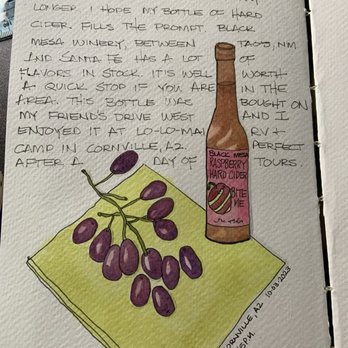 LONGER. I HOPE MY BOTTLE OF HARD
CIDER FILLS THE PROMPT. BLACK
MESA WINERY, BETWEEN TAOS, NM
AND SANTA FE HAS A LOT OF
FLAVORS IN STOCK. IT'S WELL WORTH
A QUICK STOP IF YOU ARE IN THE
AREA. THIS BOTTLE WAS BOUGHT ON
MY FRIEND'S DRIVE WEST AND I
ENJOYED IT AT LO-LO-MAI RV +
CAMP IN CORNVILLE, AZ. PERFECT
AFTER A DAY OF TOURS.
BLACK MESA
RASPBERRY
HARD CIDER
BITE
ME
CORNVILLE, AZ 10.03.2023